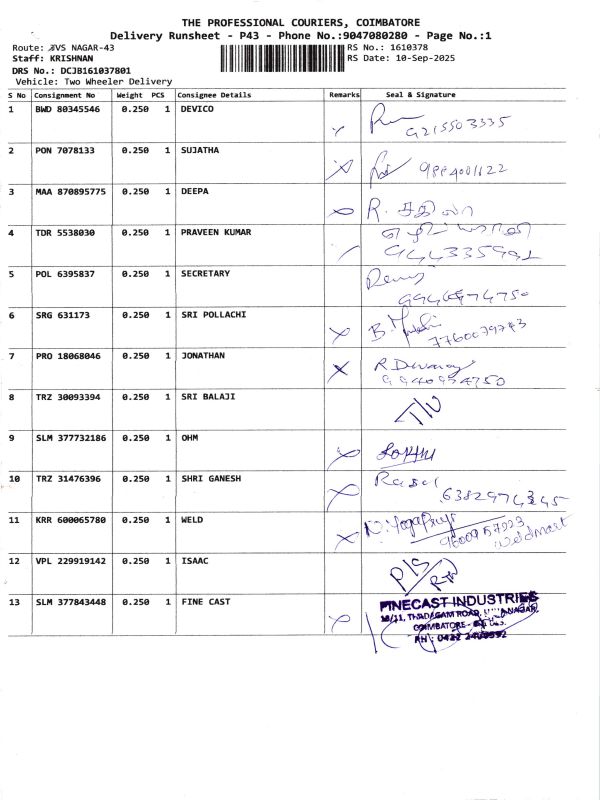 THE PROFESSIONAL COURIERS, COIMBATORE
Delivery Runsheet - P43 - Phone No.:9047080280 - Page No.:1
Route: BVS NAGAR-43 RS No.: 1610378
Staff: KRISHNAN RS Date: 10-Sep-2025
DRS No.: DCJB161037801
Vehicle: Two Wheeler Delivery
S No Consignment No Weight PCS Consignee Details Remarks Seal & Signature
1 BWD 80345546 0.250 1 DEVICO
9215503335
2 PON 7078133 0.250 1 SUJATHA
9884001122
3 MAA 870895775 0.250 1 DEEPA
R.
4 TDR 5538030 0.250 1 PRAVEEN KUMAR
5 POL 6395837 0.250 1 SECRETARY
6 SRG 631173 0.250 1 SRI POLLACHI
7760079743
7 PRO 18068046 0.250 1 JONATHAN
8 TRZ 30093394 0.250 1 SRI BALAJI
9 SLM 377732186 0.250 1 OHM
10 TRZ 31476396 0.250 1 SHRI GANESH
11 KRR 600065780 0.250 1 WELD
9600957923
Weldmart
12 VPL 229919142 0.250 1 ISAAC
13 SLM 377843448 0.250 1 FINE CAST
FINECAST INDUSTRIES
THADAGAM ROAD,
COIMBATORE -
PH : 0422